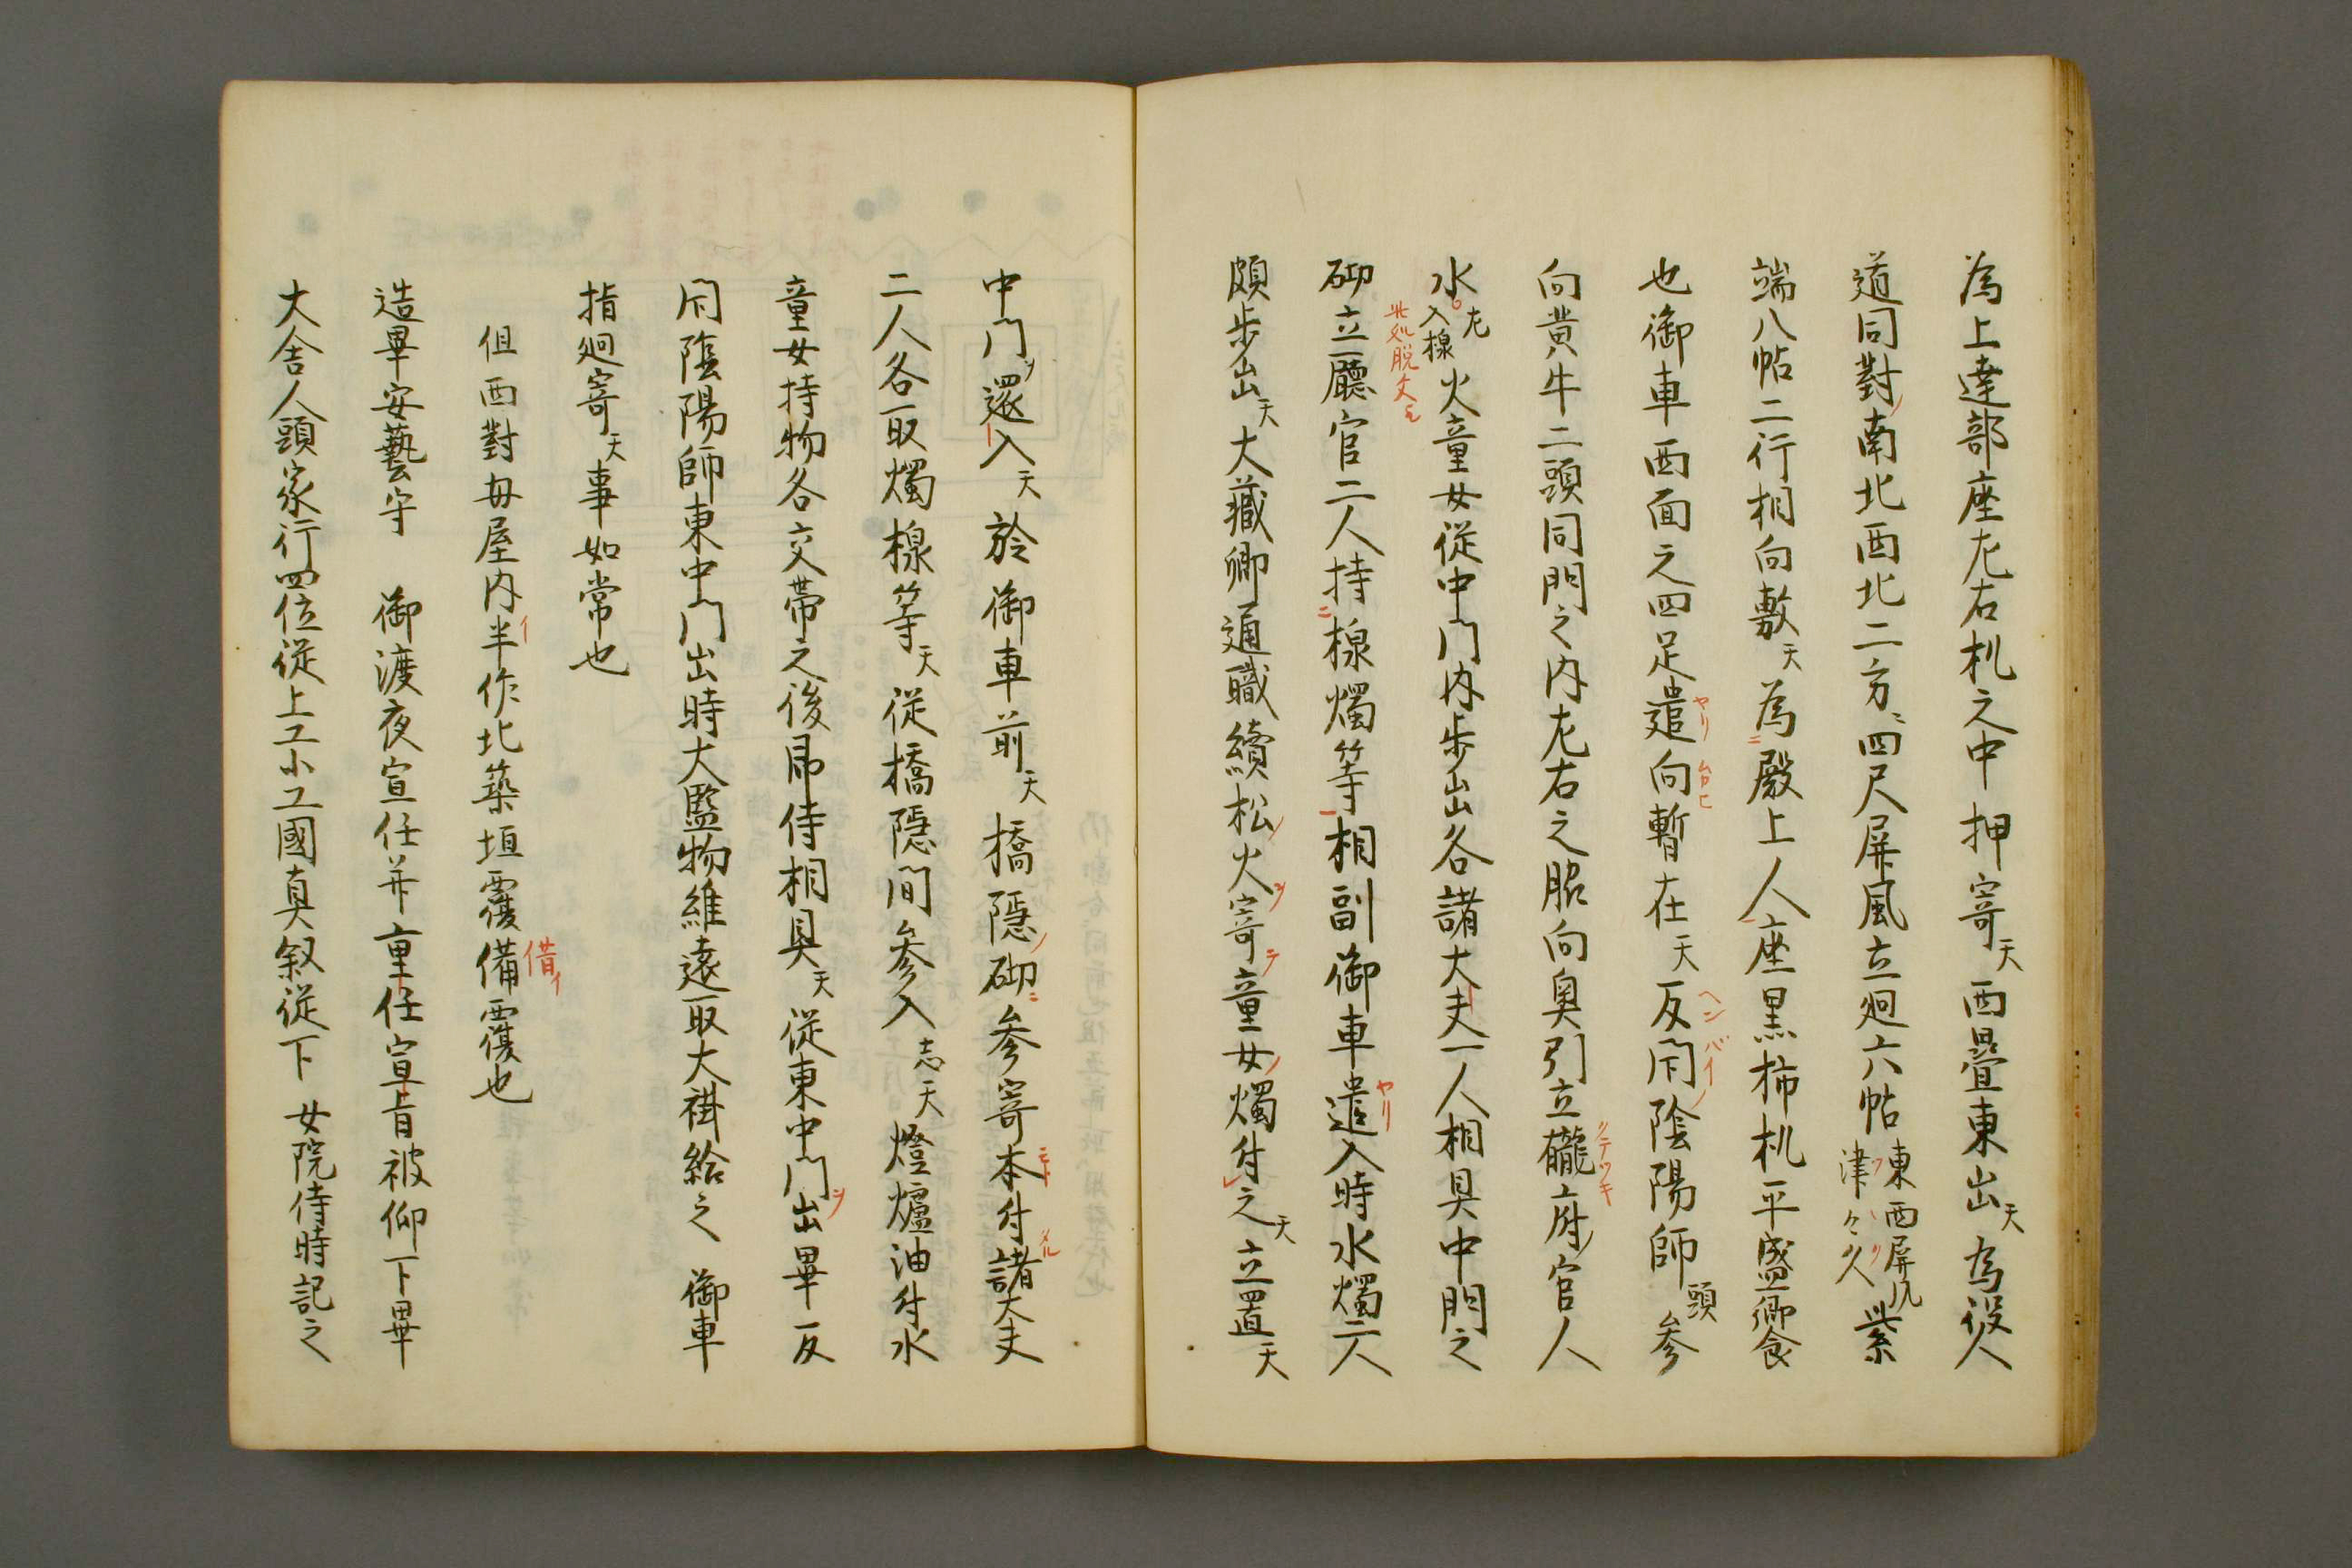 為上達部座左右机之中押寄天西疊東出天為役人
道同對ノ南北西北二方ニ四尺屏風立廻六帖東西屏風津々久紫
端八帖二行相向敷天為ニ殿上人座黒柿机平盛御食
也御車西面之四足遣ヤリ向暫在天反閇ヘンバイノ陰陽師頭参
向黄牛二頭同門之内左右之脇向奥引立廳府官人
水左入樑火童女從中門内歩出各諸大夫一人相具中門之
此処脱文モ
砌立廳官二人持ニ樑燭等相副御車遣ヤリ入時水燭二人
頗歩出天大藏卿通職續松ノ火ヲ寄テ童女ノ燭付之天立置天
中門ヲ還入天於御車前天橋隱ノ砌ニ参寄本付諸大夫
二人各取燭樑等天從橋隱間参入志天燈爐油付水
童女持物各交帶之後昂侍相具天從東中門ヲ出畢反
閇陰陽師東中門出時大監物維遠取大褂給之御車
指廻寄天事如常也
但西對母屋内半イ作北築垣覆備借イ覆也
造畢安藝守 御渡夜宣任并重任宣旨被仰下畢
大舍人頭家行四位從上工小工國真叙從下 女院侍時記之